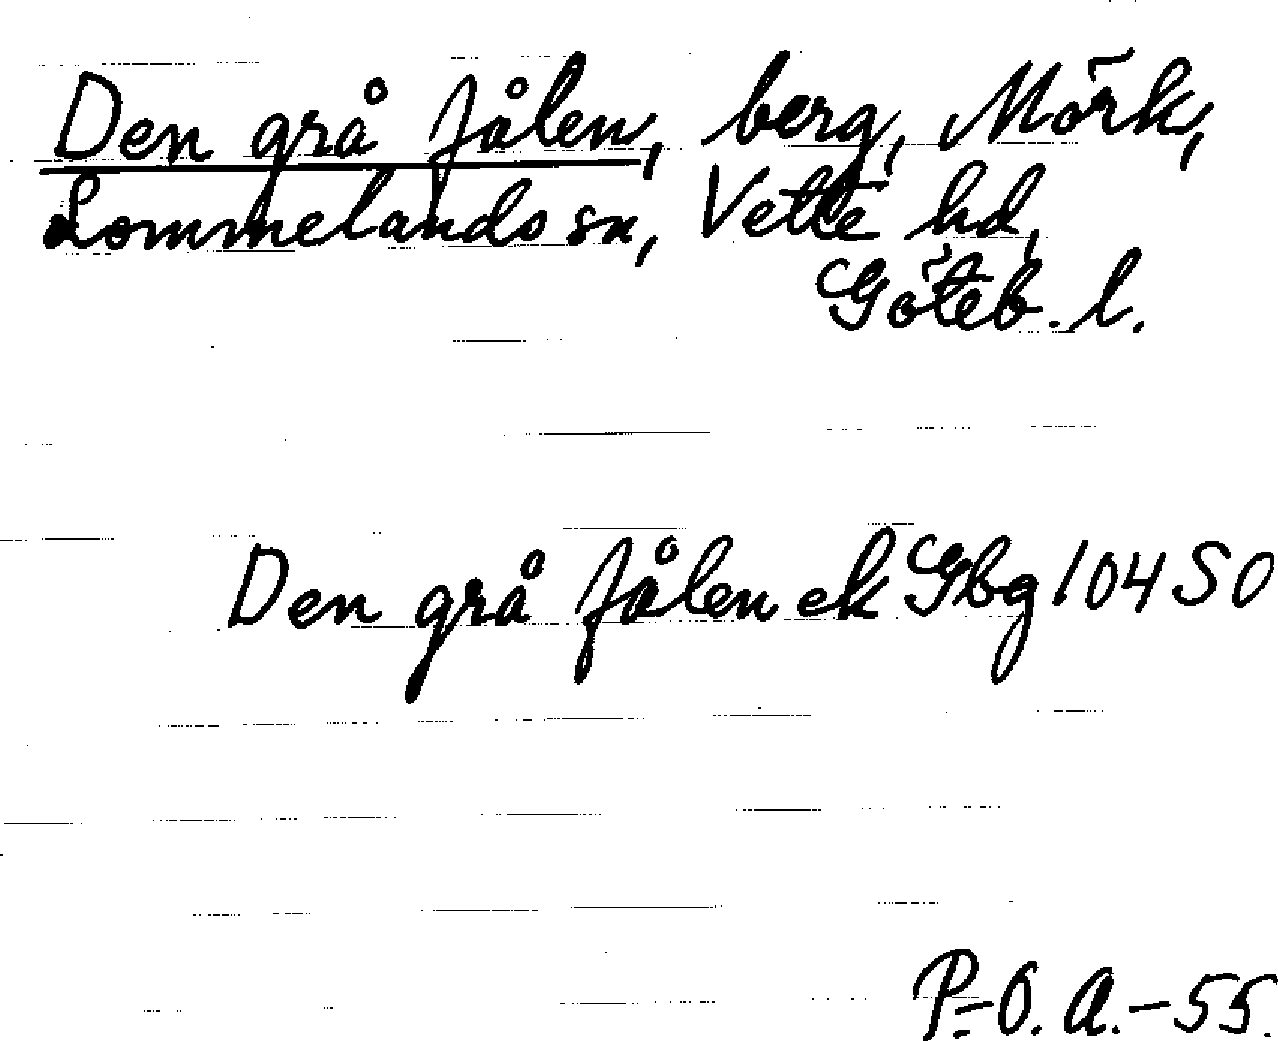 Den grå fålen, berg, Mörk,
Lommelands sn, Vette hd,
Göteb. l.
Den grå fålen ek Gbg 104 SO
P.-O. A. - 55.